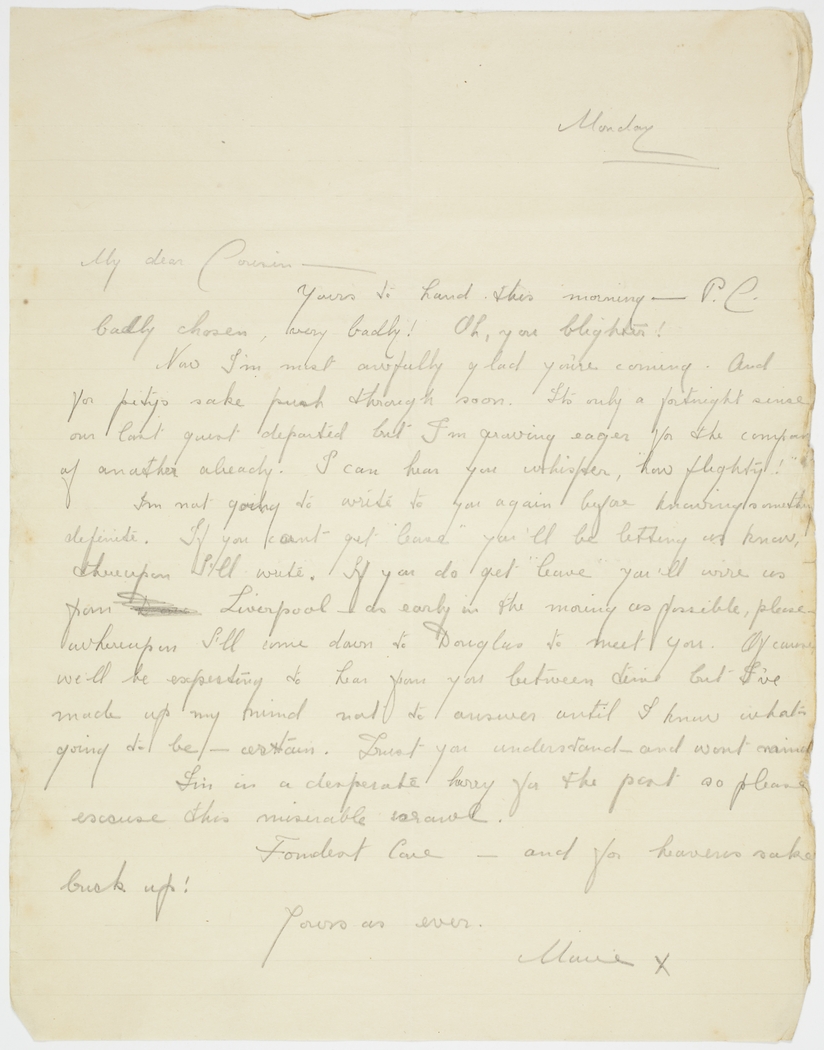 Monday
My dear Cousin —
Yours to hand this morning — P.C.
badly chosen, very badly! Oh, you blighter!
Now I'm most awfully glad you're coming. And
for pitys sake push through soon. It's only a fortnight since
our last guest departed but I'm growing eager for the compan
of another already. I can hear you whisper, "how flighty!"
I'm not going to write to you again before knowing somethin
definite. If you can't get "leave" you'll be letting us know,
thereupon I'll write. If you do get "leave" you'll wire us
from Liverpool – as early in the morning as possible, please –
whereupon I'll come down to Douglas to meet you. Of course
we'll be expecting to hear from you between time but I've
made up my mind not to answer until I know what's
going to be – certain. Trust you understand – and wont mind
I'm in a desperate hurry for the post so please
excuse this miserable scrawl.
Fondest Love – and for heavens sake
buck up!
Yours as ever.
Marie X